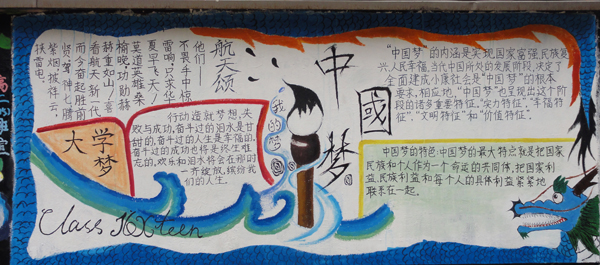 航天颂
他们——
不畏手中惊
雷响,只求华
夏早飞天!
莫道英雄桑
榆晚,功勋赫
赫重如山,喜
看航天新一代
而今奋起胜前
贤,箭神七腾
紫烟,披祥云,
扶雷电。
大学
梦
行动造就梦想,失
败与成功,奋斗过的泪水是甘
甜的,奋斗过的人生是幸福的,
奋斗过的成功也将是终生难
忘的,欢乐和泪水将会在那时
一齐绽放,缤纷我
们的人生。
Class Sixteen
我的梦
中國梦
“中国梦”的内涵是实现国家富强,民族复
兴,人民幸福.当代中国所处的发展阶段,决定了
全面建成小康社会是“中国梦”的根本
要求,相应地,“中国梦”也呈出这个阶
段的诸多重要特征,“实力特征”,“幸福特
征”,“文明特征”和“价值特征”.
中国梦的特色:中国梦的最大特点就是把国家
民族和个人作为一个命运的共同体,把国家利
益,民族利益和每个人的具体利益紧紧地
联系在一起。